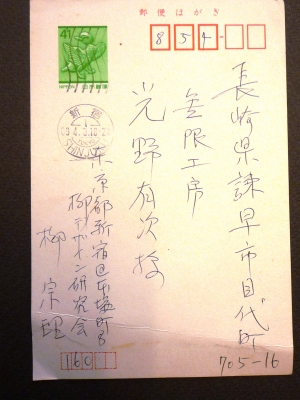 郵便はがき
41
NIPPON 日本郵便
854-
長崎県諫早市目代町
705-16
無限工房
光野有次様
新宿
SHINJUKU
東京都新宿区本塩町8
柳デザイン研究会
柳宗理
160